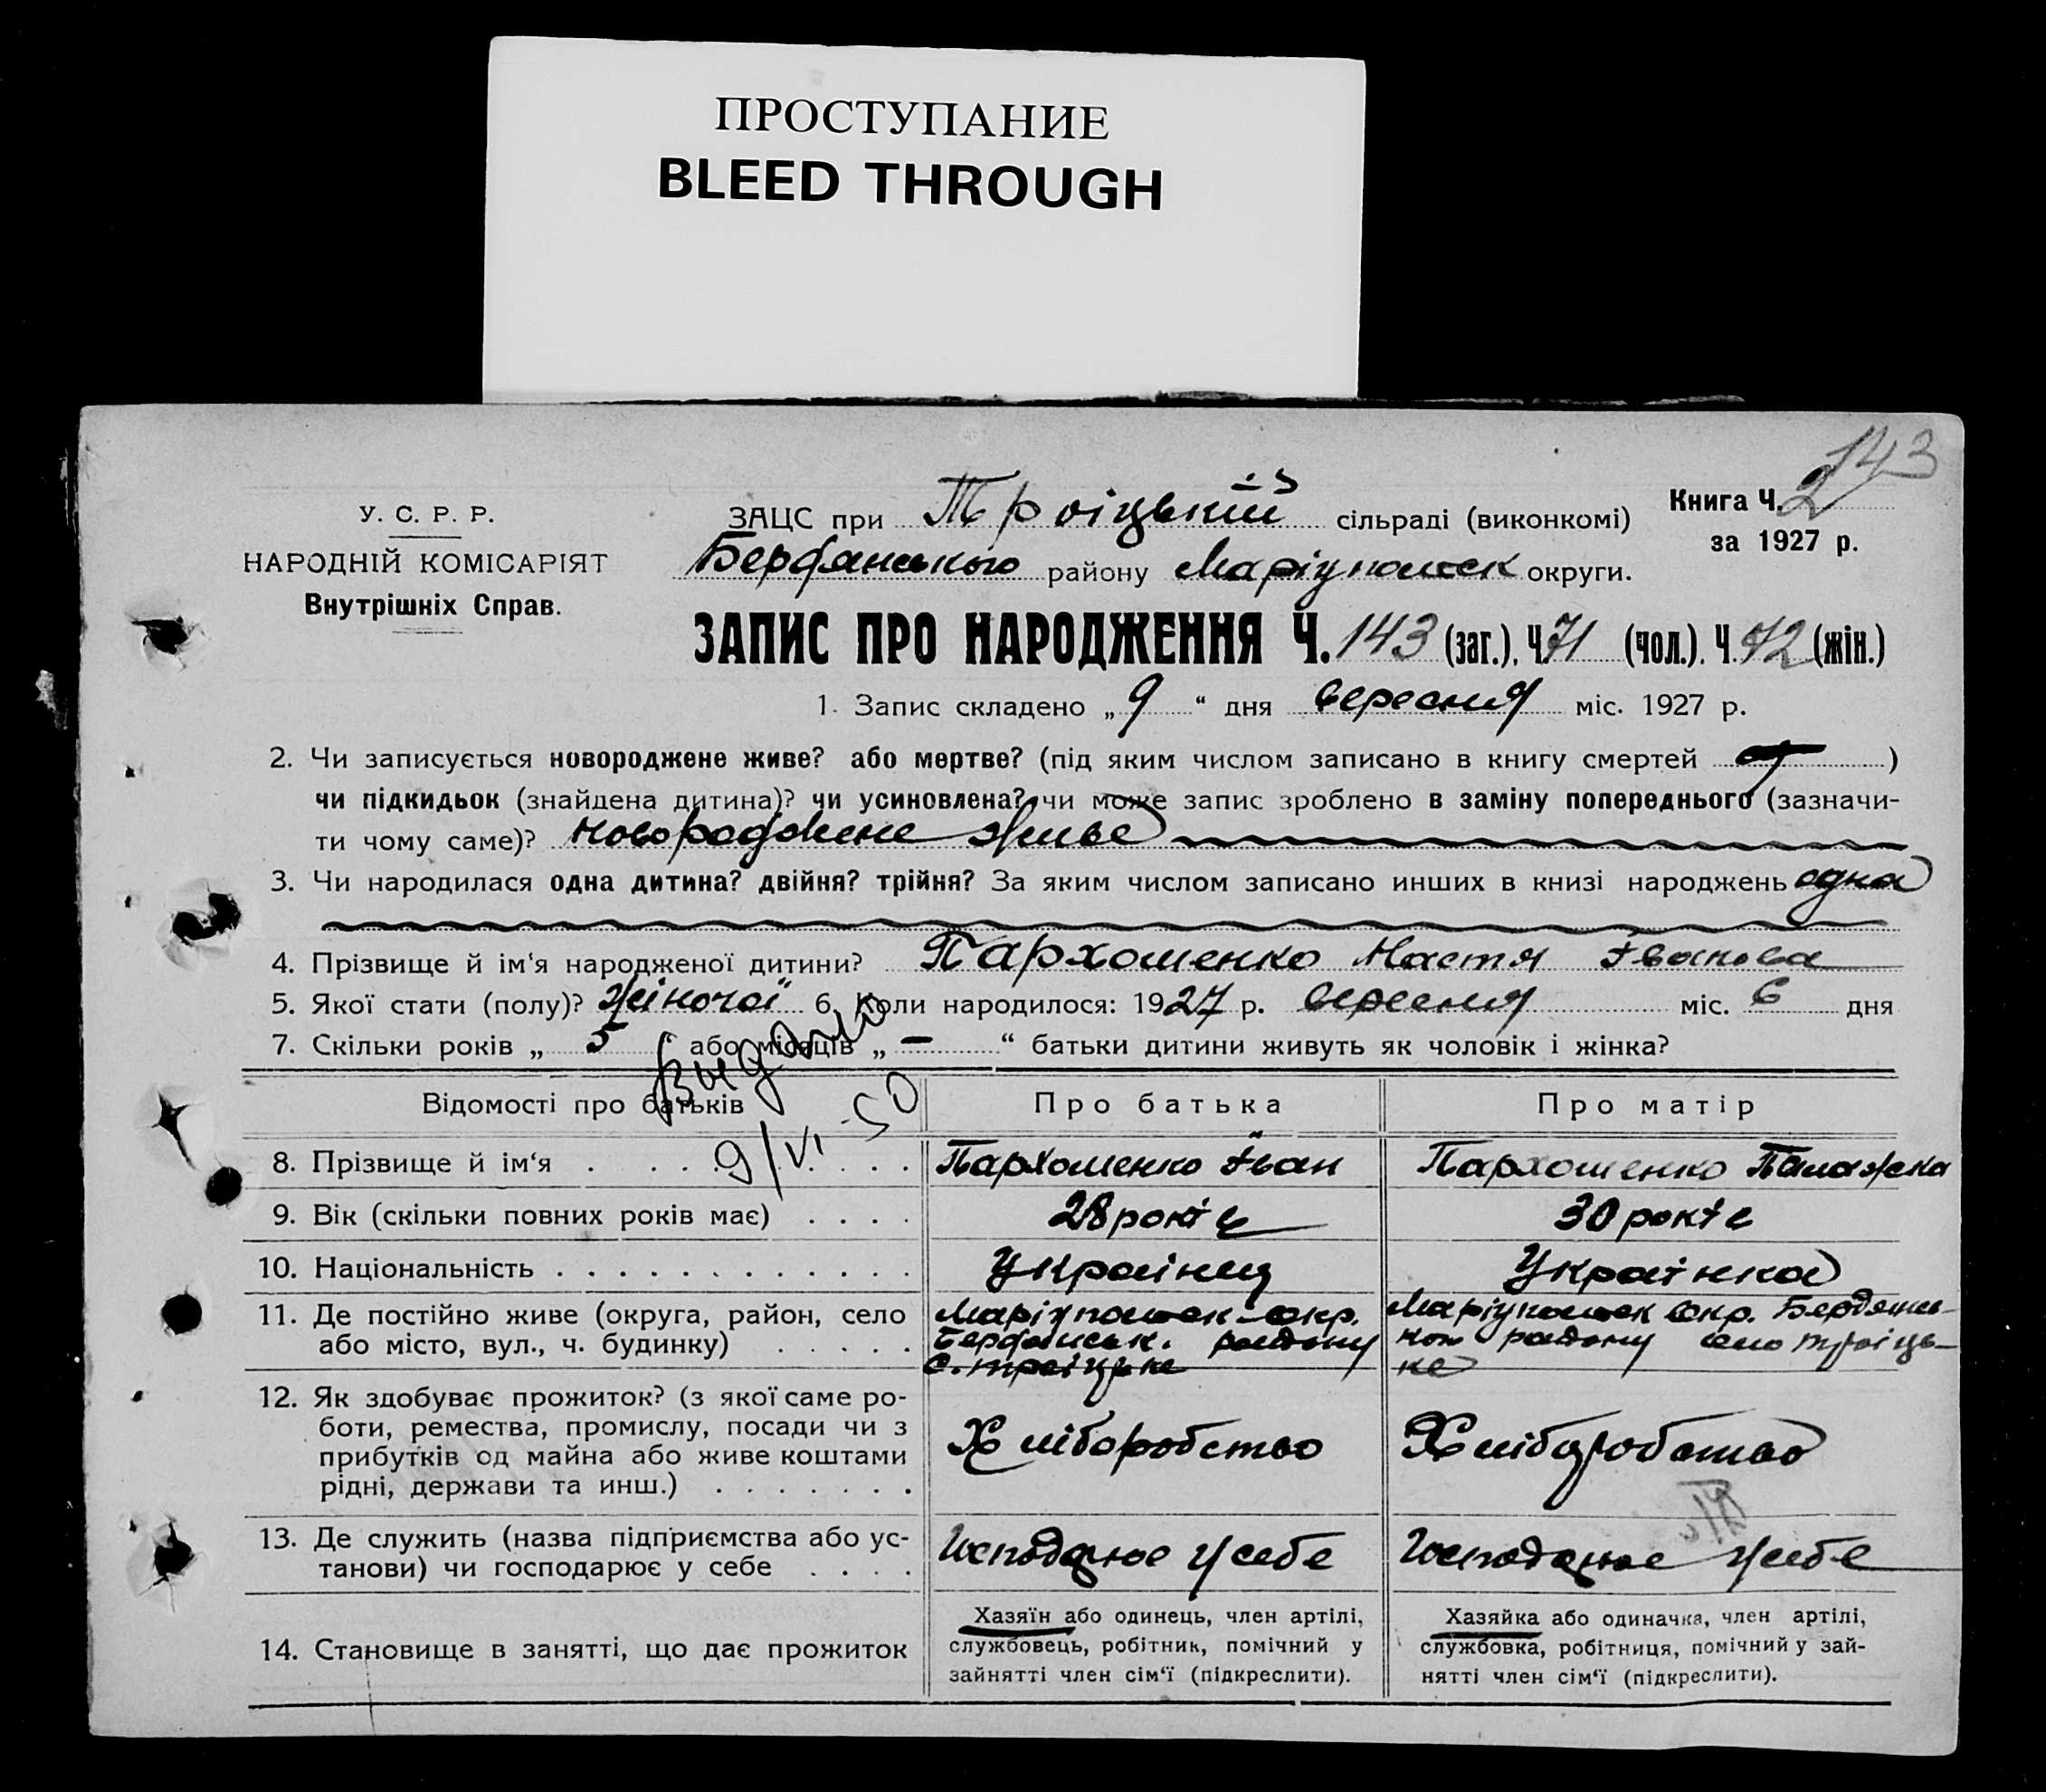 ПРОСТУПАНИЕ
BLEED THROUGH
143
У. С. Р. Р.
НАРОДНІЙ КОМІСАРІЯТ
Внутрішніх Справ.
ЗАЦС при Троіцькій сільраді (виконкомі)
Бердянського району Маріупольск округи.
Книга Ч. 2
за 1927 р.
ЗАПИС ПРО НАРОДЖЕННЯ Ч. 143 (заг.), Ч. 71 (чол.), Ч. 72 (жін.)
1. Запис складено „ 9 “ дня вересня міс. 1927 р.
2. Чи записується новороджене живе? або мертве? (під яким числом записано в книгу смертей )
чи підкидьок (знайдена дитина)? чи усиновлена? чи може запис зроблено в заміну попереднього (зазначи-
ти чому саме)? новороджене живе
3. Чи народилася одна дитина? двійня? трійня? За яким числом записано инших в книзі народжень одна
4. Прізвище й ім‘я народженої дитини? Пархоменко Настя Іванова
5. Якої стати (полу)? жіночої 6. Коли народилося: 1927 р. вересня міс. 6 дня
7. Скільки років „ 5 “ або місяців „ — “ батьки дитини живуть як чоловік і жінка?
Выдано
9/VI-50
Відомості про батьків Про батька Про матір
8. Прізвище й ім‘я . . . . . . . . Пархоменко Іван Пархоменко Палажка
9. Вік (скільки повних років має) . . . . 28 років 30 років
10. Національність . . . . . . . . . . . . . Украінец Украінка
11. Де постійно живе (округа, район, село Маріупольск окр. Маріупольск Окр. Бердянсь-
або місто, вул., ч. будинку) . . . . . Бердянськ. району кого району село Троіць-
с. Троіцьке ке
12. Як здобуває прожиток? (з якої саме ро-
боти, ремества, промислу, посади чи з
прибутків од майна або живе коштами Хліборобство Хліборобство
рідні, держави та инш.) . . . . . . .
13. Де служить (назва підприємства або ус-
танови) чи господарює у себе . . . . Господарює у себе Господарює у себе
14. Становище в занятті, що дає прожиток
Хазяїн або одинець, член артілі,
службовець, робітник, помічний у
зайнятті член сім‘ї (підкреслити).
Хазяйка або одиначка, член артілі,
службовка, робітниця, помічний у зай-
нятті член сім‘ї (підкреслити).